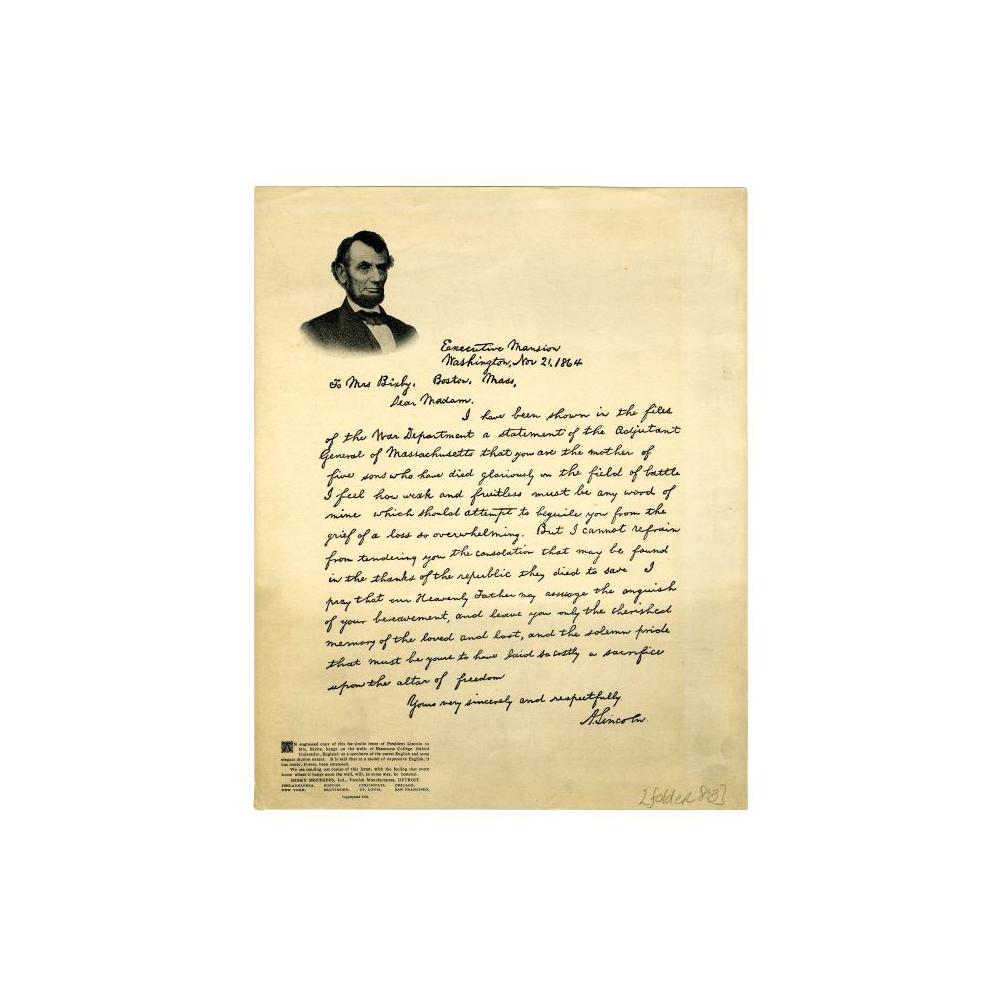 Executive Mansion
Washington, Nov 21, 1864
To Mrs Bixby, Boston, Mass,
Dear Madam.
I have been shown in the files
of the War Department a statement of the Adjutant
General of Massachusetts that you are the mother of
five sons who have died gloriously on the field of battle
I feel how weak and fruitless must be any word of
mine which should attempt to beguile you from the
grief of a loss so overwhelming. But I cannot refrain
from tendering you the consolation that may be found
in the thanks of the republic they died to save I
pray that our Heavenly Father may assuage the anguish
of your bereavement, and leave you only the cherished
memory of the loved and lost, and the solemn pride
that must be yours to have laid so costly a sacrifice
upon the altar of freedom
Yours very sincerely and respectfully
A. Lincoln.
AN engrossed copy of this fac simile letter of President Lincoln to
Mrs. Bixby, hangs on the walls of Brasenose College Oxford
University, England as a specimen of the purest English and most
elegant diction extant. It is said that as a model of expressive English, it
has rarely, if ever, been surpassed.
We are sending out copies of this letter, with the feeling that every
home where it hangs upon the wall, will, in some way, be bettered.
BERRY BROTHERS, Ltd., Varnish Manufacturers, DETROIT.
PHILADELPHIA. BOSTON. CINCINNATI. CHICAGO.
NEW YORK. BALTIMORE. ST. LOUIS. SAN FRANCISCO.
Copyrighted
[folder 83]